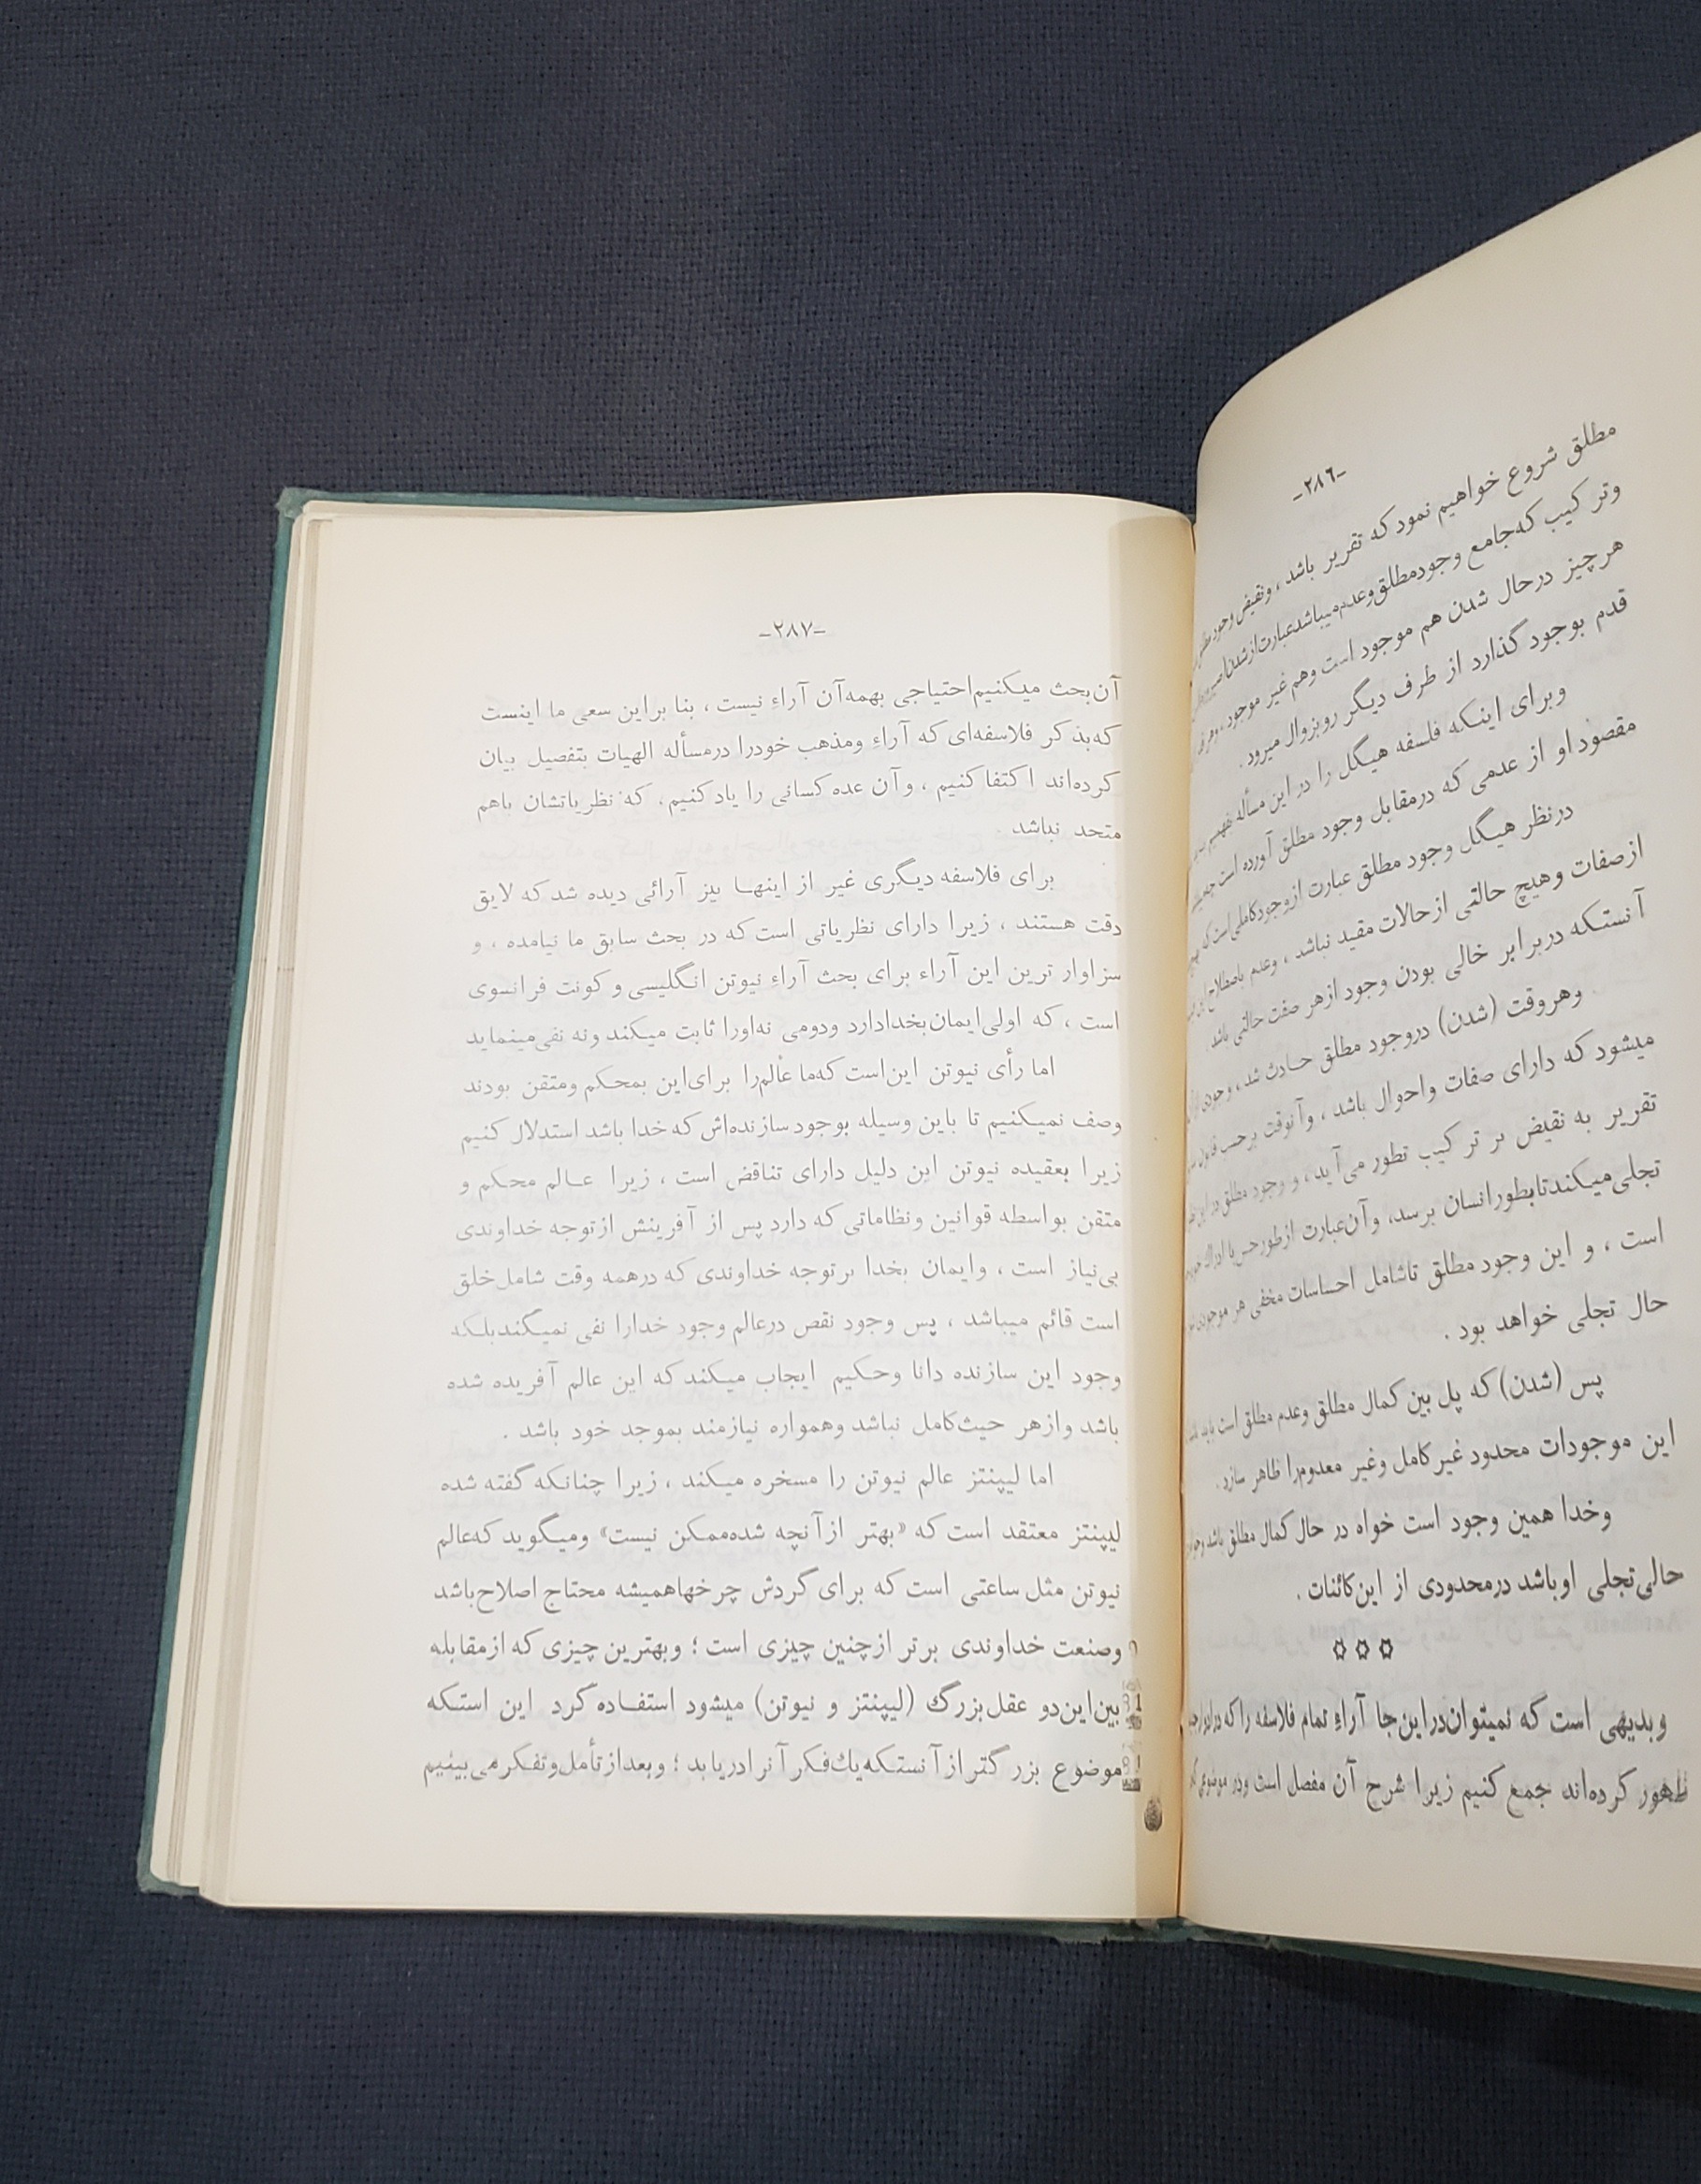 -۲۸۶-
مطلق شروع خواهیم نمود که تقریر باشد ، ونقیض وجود
وتر کیب که‌جامع وجودمطلق‌وعدم‌میباشدعبارت‌ازشدن
هرچیز درحال شدن هم موجود است وهم غیر موجود ،
قدم بوجود گذارد از طرف دیگر روبزوال میرود .
وبرای اینکه فلسفه هیگل را در این مسأله
مقصود او از عدمی که درمقابل وجود مطلق آورده است
درنظر هیگل وجود مطلق عبارت ازوجودکاملی‌است‌که
ازصفات وهیچ حالتی ازحالات مقید نباشد ، وعدم باصطلاح
آنستکه دربرابر خالی بودن وجود ازهر صفت حالتی باشد.
وهروقت (شدن) دروجود مطلق حادث شد ، وجودی
میشود که دارای صفات واحوال باشد ، وآنوقت برحسب
تقریر به نقیض بر تر کیب تطور می‌آید ، و وجود مطلق
تجلی‌میکندتابطورانسان برسد، وآن‌عبارت ازطورحس
است ، و این وجود مطلق تاشامل احساسات مخفی هر
حال تجلی خواهد بود .
پس (شدن) که پل بین کمال مطلق وعدم مطلق است باید
این موجودات محدود غیر کامل وغیر معدوم‌را ظاهر سازد.
وخدا همین وجود است خواه در حال کمال مطلق باشد
حالی‌تجلی اوباشد درمحدودی از این‌کائنات .
✡ ✡ ✡
وبدیهی است که نمیتوان‌دراین‌جا آراءِ تمام فلاسفه راکه
ظهور کرده‌اند جمع کنیم زیرا شرح آن مفصل است ودر
-۲۸۷-
آن‌بحث میکنیم‌احتیاجی بهمه‌آن آراءِ نیست ، بنا براین سعی ما اینست
که‌بذکر فلاسفه‌ای که آراءِ ومذهب خودرا درمسأله الهیات بتفصیل بیان
کرده‌اند اکتفا کنیم ، وآن عده کسانی را یاد کنیم، که نظریاتشان باهم
متحد نباشد .
برای فلاسفه دیگری غیر از اینها نیز آرائی دیده شد که لایق
دقت هستند ، زیرا دارای نظریاتی است که در بحث سابق ما نیامده ، و
سزاوار ترین این آراء برای بحث آراء نیوتن انگلیسی و کونت فرانسوی
است ، که اولی‌ایمان‌بخدادارد ودومی نه‌اورا ثابت میکند ونه نفی‌مینماید
اما رأی نیوتن این‌است که‌ما عالم‌را برای‌این بمحکم ومتقن بودند
وصف نمیکنیم تا باین وسیله بوجود سازنده‌اش که خدا باشد استدلال کنیم
زیرا بعقیده نیوتن این دلیل دارای تناقض است ، زیرا عالم محکم و
متقن بواسطه قوانین ونظاماتی که دارد پس از آفرینش ازتوجه خداوندی
بی‌نیاز است ، وایمان بخدا برتوجه خداوندی که درهمه وقت شامل‌خلق
است قائم میباشد ، پس وجود نقص درعالم وجود خدارا نفی نمیکندبلکه
وجود این سازنده دانا وحکیم ایجاب میکند که این عالم آفریده شده
باشد وازهر حیث‌کامل نباشد وهمواره نیازمند بموجد خود باشد .
اما لیپنتز عالم نیوتن را مسخره میکند ، زیرا چنانکه گفته شده
لیپنتز معتقد است که «بهتر ازآنچه شده‌ممکن نیست» ومیگوید که‌عالم
نیوتن مثل ساعتی است که برای گردش چرخهاهمیشه محتاج اصلاح‌باشد
وصنعت خداوندی برتر ازچنین چیزی است ؛ وبهترین چیزی که ازمقابله
بین‌این‌دو عقل‌بزرگ (لیپنتز و نیوتن) میشود استفاده کرد این استکه
موضوع بزرگتر ازآنستکه‌یك‌فکر آنرادریابد ؛ وبعدازتأمل‌وتفکر می‌بینیم